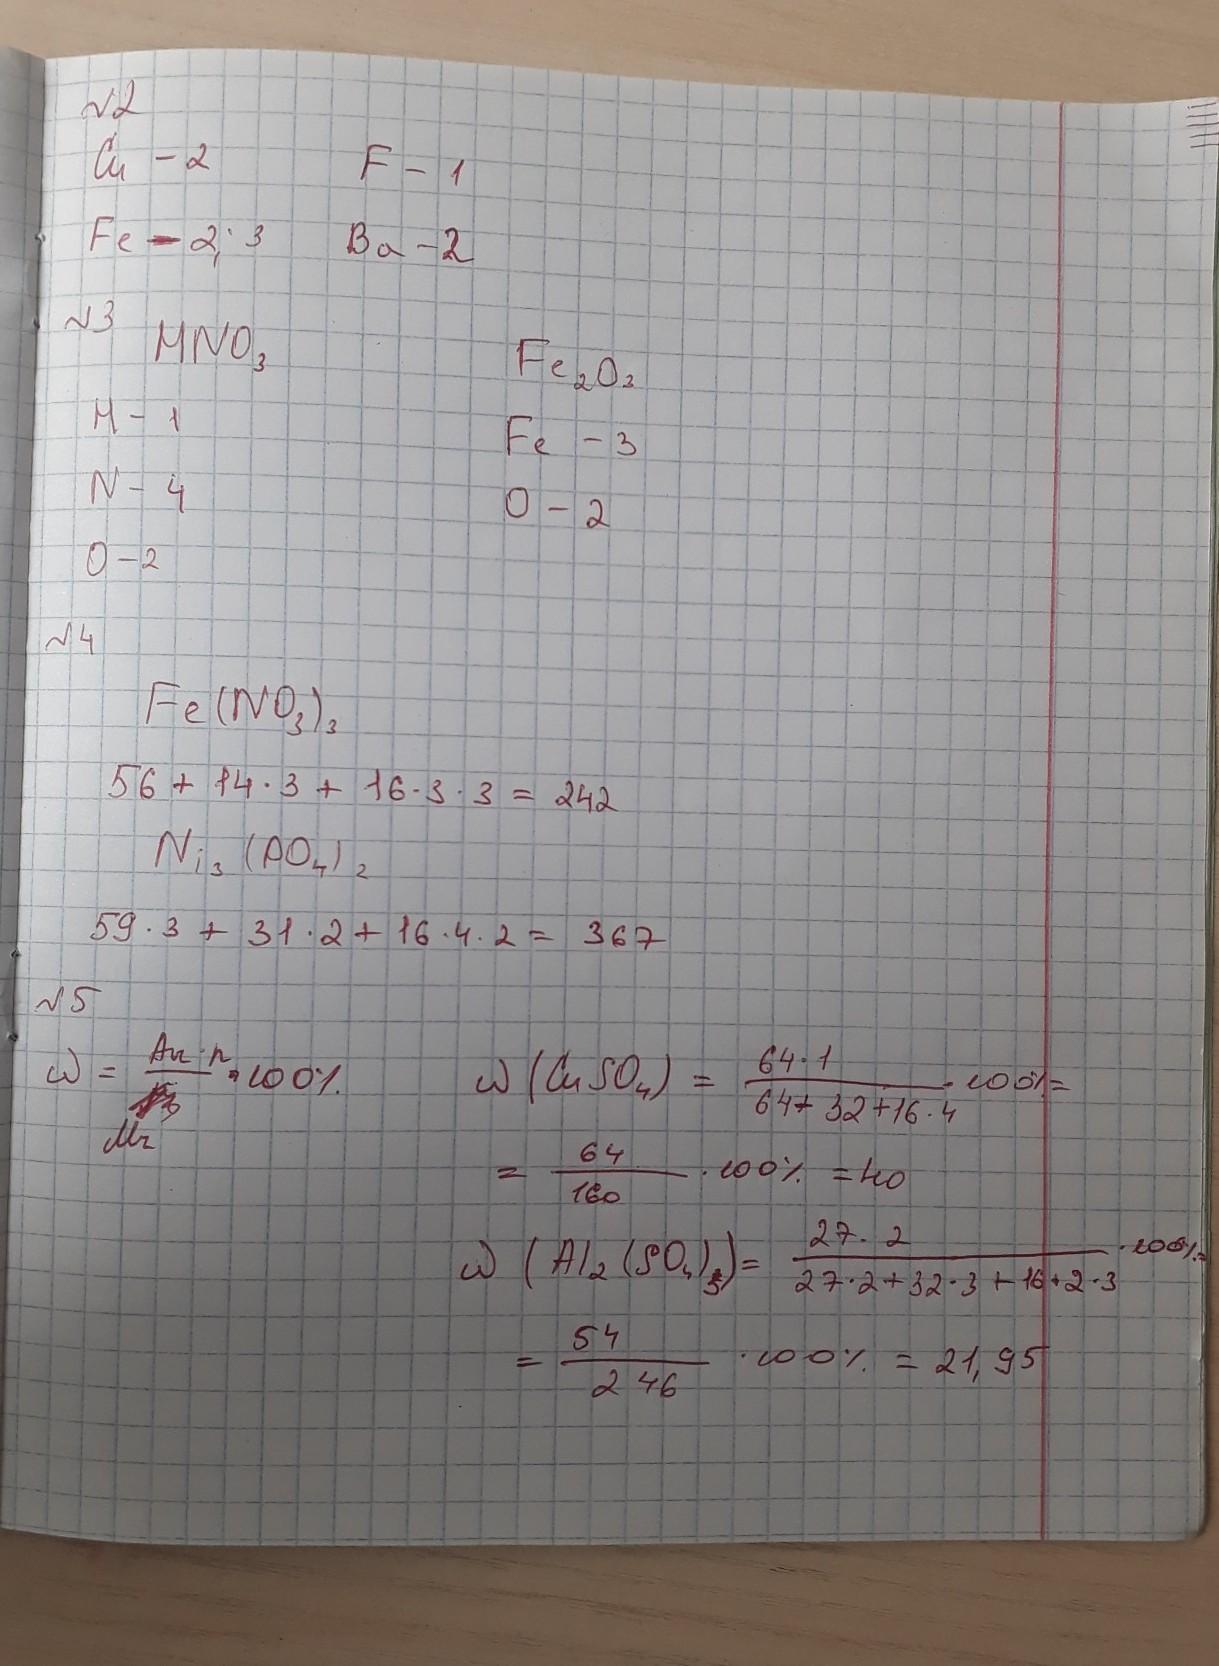 №2
Cu - 2 F - 1
Fe - 2; 3 Ba - 2
№3
HNO₃ Fe₂O₃
H - 1 Fe - 3
N - 4 O - 2
O - 2
№4
Fe(NO₃)₃
56 + 14·3 + 16·3·3 = 242
Ni₃(PO₄)₂
59·3 + 31·2 + 16·4·2 = 367
№5
ω = Ar·n / Mr · 100% ω(CuSO₄) = 64·1 / 64+32+16·4 · 100% =
= 64 / 160 · 100% = 40
ω(Al₂(SO₄)₃) = 27·2 / 27·2+32·3+16·2·3 · 100% =
= 54 / 246 · 100% = 21,95